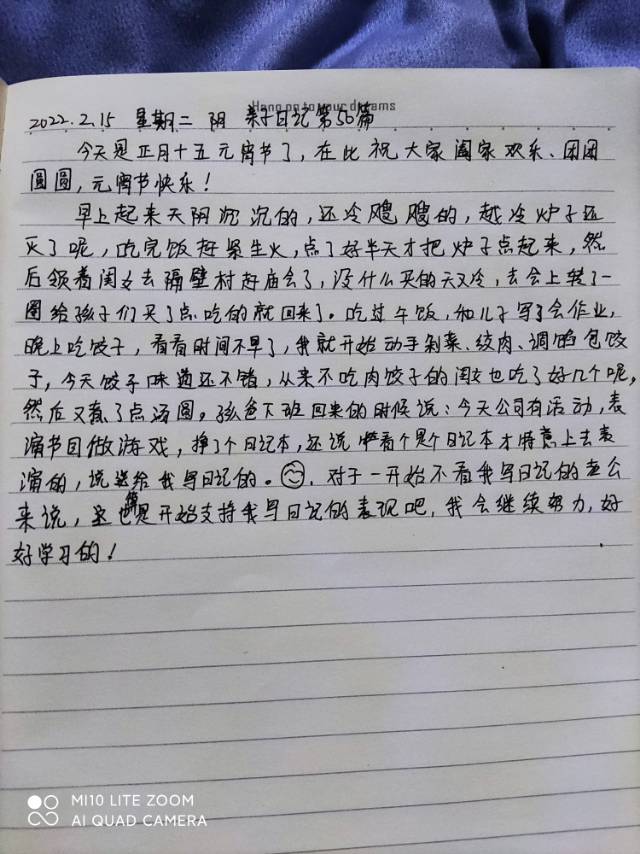 Hang on to your dreams
2022.2.15 星期二 阴 亲子日记第56篇
今天是正月十五元宵节了，在此祝大家阖家欢乐、团团
圆圆，元宵节快乐！
早上起来天阴沉沉的，还冷飕飕的，越冷炉子还
灭了呢，吃完饭赶紧生火，点了好半天才把炉子点起来，然
后领着闺女去隔壁村赶庙会了，没什么买的天又冷，去会上转了一
圈给孩子们买了点吃的就回来了。吃过午饭，和儿子写了会作业，
晚上吃饺子，看看时间不早了，我就开始动手剁菜、绞肉、调馅包饺
子，今天饺子味道还不错，从来不吃肉饺子的闺女也吃了好几个呢，
然后又煮了点汤圆。孩爸下班回来的时候说：今天公司有活动，表
演节目做游戏，挣了个日记本，还说看着是个日记本才特意上去表
演的，说送给我写日记的。对于一开始不看我写日记的老公
来说，这也算是开始支持我写日记的表现吧，我会继续努力，好
好学习的！
MI10 LITE ZOOM
AI QUAD CAMERA